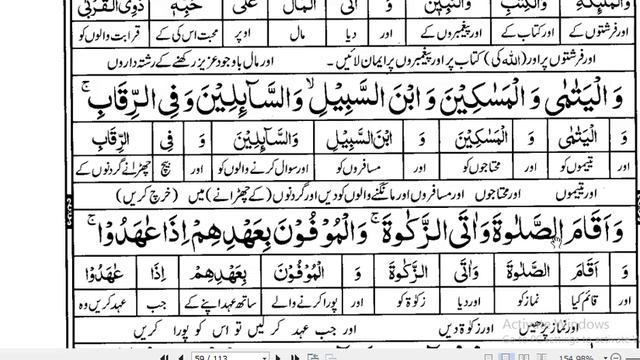 وَالْمَلٰٓئِكَةِ وَالْكِتٰبِ وَالنَّبِيّٖنَ وَ اٰتَى الْمَالَ عَلٰى حُبِّهٖ ذَوِي الْقُرْبٰى
اور فرشتوں کے اور کتاب کے اور پیغمبروں کے اور دیا مال اوپر محبت اس کی کے قرابت والوں کو
اور فرشتوں پر اور (اللہ کی) کتاب پر اور پیغمبروں پر ایمان لائیں۔ اور مال باوجود عزیز رکھنے کے رشتہ داروں
وَ الْيَتٰمٰى وَ الْمَسٰكِيْنَ وَ ابْنَ السَّبِيْلِ ۙ وَ السَّآئِلِيْنَ وَ فِي الرِّقَابِ ۚ
وَ الْيَتٰمٰى وَ الْمَسٰكِيْنَ وَ ابْنَ السَّبِيْلِ وَالسَّآئِلِيْنَ وَ فِي الرِّقَابِ
اور یتیموں کو اور محتاجوں کو اور مسافروں کو اور سوال کرنے والوں کو اور بیچ چھڑانے گردنوں کے
اور یتیموں اور محتاجوں اور مسافروں اور مانگنے والوں کو دیں اور گردنوں (کے چھڑانے) میں (خرچ کریں)
وَ اَقَامَ الصَّلٰوةَ وَ اٰتَى الزَّكٰوةَ ۚ وَ الْمُوْفُوْنَ بِعَهْدِهِمْ اِذَا عٰهَدُوْا ۚ
وَ اَقَامَ الصَّلٰوةَ وَاٰتَى الزَّكٰوةَ وَ الْمُوْفُوْنَ بِعَهْدِهِمْ اِذَا عٰهَدُوْا
اور قائم کیا نماز کو اور دیا زکوٰۃ کو اور پورا کرنے والے ساتھ عہد اپنے کے جب عہد کریں وہ
اور نماز پڑھیں اور زکوٰۃ دیں اور جب عہد کر لیں تو اس کو پورا کریں
59 / 113
154.98%